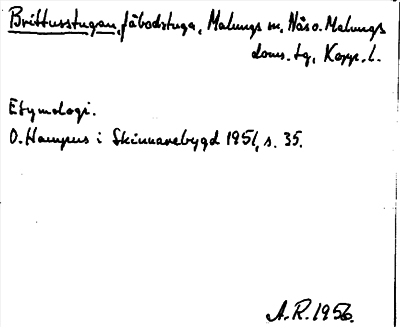 Brittusstugan, fäbodstuga, Malungs sn, Nås o. Malungs
doms. tg, Kopp. l.
Etymologi.
O. Hampus i Skinnarebygd 1951, s. 35.
A.R. 1956.